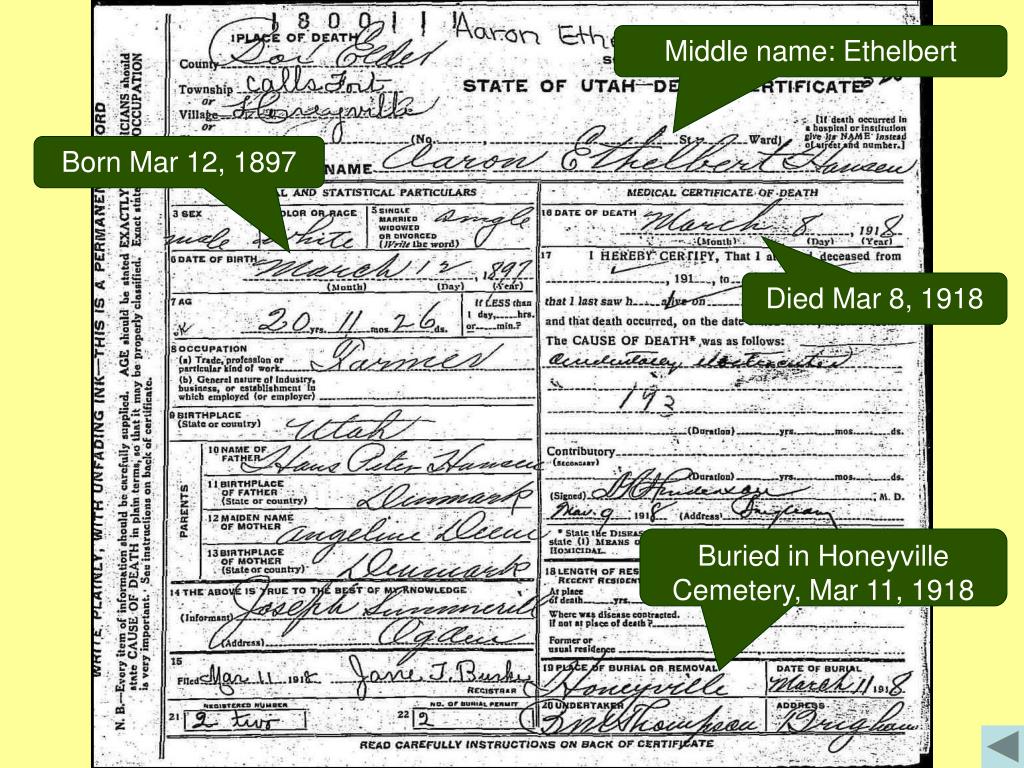 1 8 0 0 1 1 1
Aaron Ethe
PLACE OF DEATH
County Box Elder
Middle name: Ethelbert
Township Calls Fort
STATE OF UTAH—DE ERTIFICATE
or
Village Honeyville
or
[If death occurred in
a hospital or institution
give its NAME instead
of street and number.]
(No. St.; Ward)
Born Mar 12, 1897
NAME Aaron Ethelbert Hansen
L AND STATISTICAL PARTICULARS
3 SEX
male
OLOR OR RACE
White
5 SINGLE
MARRIED
WIDOWED
OR DIVORCED
(Write the word)
Single
6 DATE OF BIRTH
March 12, 1897
(Month) (Day) (Year)
7 AG
20 yrs. 11 mos. 26 ds.
If LESS than
1 day, hrs.
or min.?
8 OCCUPATION
(a) Trade, profession or
particular kind of work
Farmer
(b) General nature of industry,
business, or establishment in
which employed (or employer)
9 BIRTHPLACE
(State or country)
Utah
PARENTS
10 NAME OF
FATHER
Hans Peter Hansen
11 BIRTHPLACE
OF FATHER
(State or country)
Denmark
12 MAIDEN NAME
OF MOTHER
Angeline
13 BIRTHPLACE
OF MOTHER
(State or country)
Denmark
14 THE ABOVE IS TRUE TO THE BEST OF MY KNOWLEDGE
(Informant) Joseph Summerill
(Address) Ogden
15
Filed Mar 11 1918 Jane T. Burke
REGISTRAR
REGISTERED NUMBER
21 2 two
NO. OF BURIAL PERMIT
22 2
MEDICAL CERTIFICATE OF DEATH
16 DATE OF DEATH
March 8, 1918
(Month) (Day) (Year)
17 I HEREBY CERTIFY, That I a deceased from
, 191 , to
Died Mar 8, 1918
that I last saw h alive on
and that death occurred, on the date
The CAUSE OF DEATH* was as follows:
193
(Duration) yrs. mos. ds.
Contributory
(SECONDARY)
(Duration) yrs. mos. ds.
(Signed) M. D.
Mar. 9 1918 (Address)
* State the DISEAS
state (1) MEANS O
HOMICIDAL.
Buried in Honeyville
Cemetery, Mar 11, 1918
18 LENGTH OF RES
RECENT RESIDENT
At place
of death yrs.
Where was disease contracted,
if not at place of death?
Former or
usual residence
19 PLACE OF BURIAL OR REMOVAL
Honeyville
DATE OF BURIAL
March 11 1918
20 UNDERTAKER
Thompson
ADDRESS
Brigham
READ CAREFULLY INSTRUCTIONS ON BACK OF CERTIFICATE
WRITE PLAINLY, WITH UNFADING INK—THIS IS A PERMANEN ORD
N. B.—Every item of information should be carefully supplied. AGE should be stated EXACTLY. ICIANS should
state CAUSE OF DEATH in plain terms, so that it may be properly classified. Exact state OCCUPATION
is very important. See instructions on back of certificate.